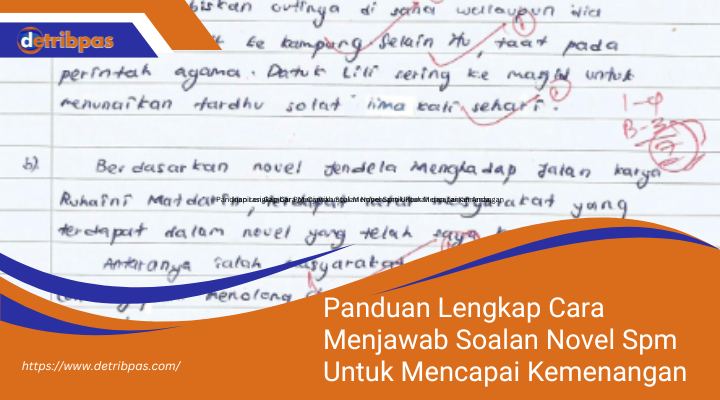 detribpas
cutinya di sana walaupun dia
ke kampung. Selain itu, taat pada
perintah agama. Datuk Lili sering ke masjid untuk
menunaikan fardhu solat lima kali sehari.
b) Berdasarkan novel Jendela Menghadap Jalan karya
Ruhaini Matdarin, terdapat masyarakat yang
terdapat dalam novel yang telah saya
Antaranya ialah masyarakat
menolong
Panduan Lengkap Cara
Menjawab Soalan Novel Spm
Untuk Mencapai Kemenangan
https://www.detribpas.com/